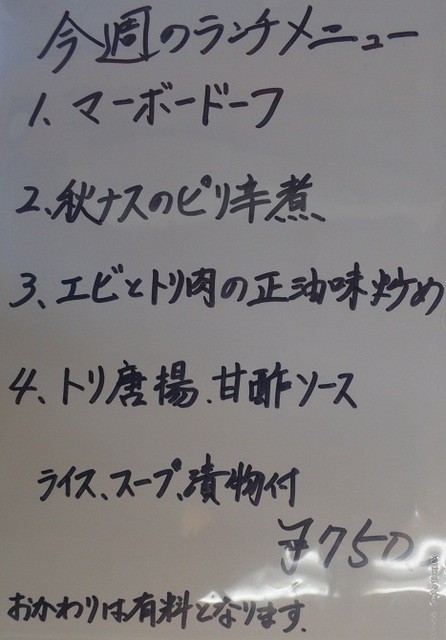 今週のランチメニュー
1、マーボードーフ
2、秋ナスのピリ辛煮
3、エビとトリ肉の正油味炒め
4、トリ唐揚、甘酢ソース
ライス、スープ、漬物付
¥750
おかわりは有料となります。